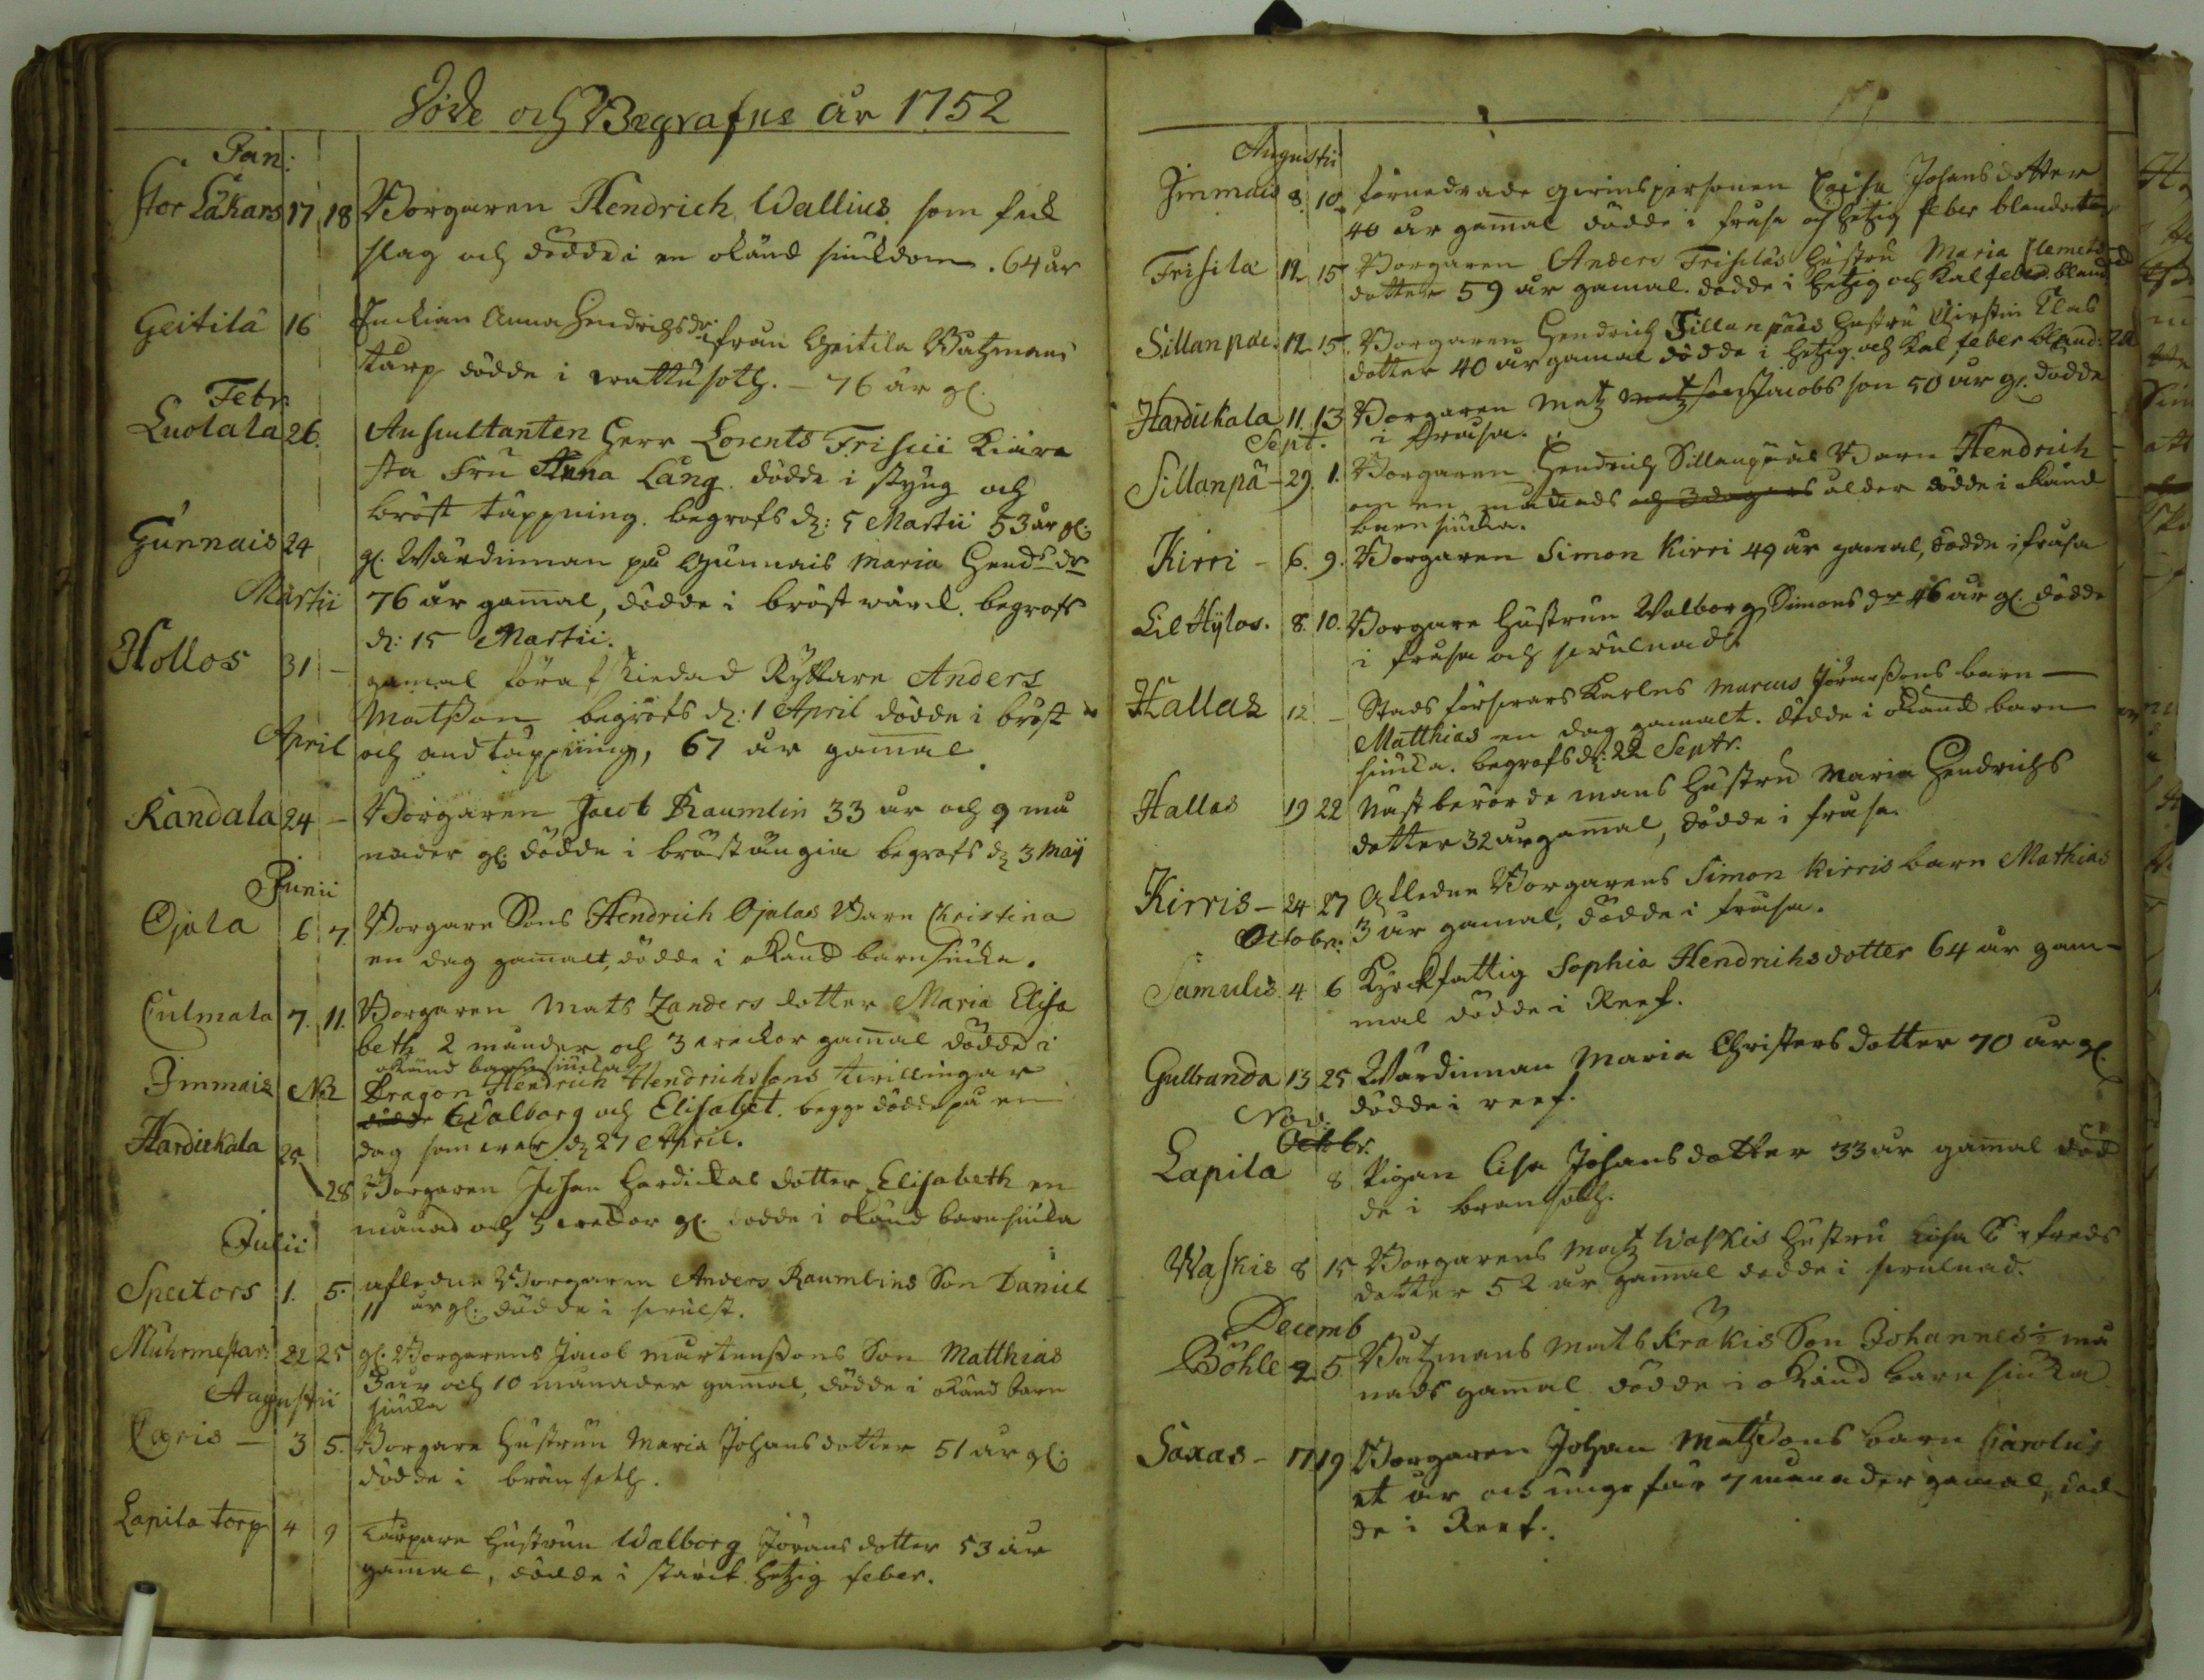 Döde och Begrafne år 1752
Jan:
Stor Låkars 17 18 Borgaren Hendrich Wallius, som feck
slag och dödde i en okänd siukdom. 64 år
Geitila 16 Änckian Anna Hendrichsdr: ifrån Geitila Båtzmans
tårp dödde i wattusoth. – 76 år gl.
Febr.
Luolala 26. Auscultanten Herr Lorents Frisii Kiära
sta Fru Anna Lång dödde i styng och
bröst täppning. begrofs d: 5 Martii 53 år gl:
Gunnais 24 gl. Wärdinnan på Gunnais Maria Hend: dr
Martii 76 år gamal, dödde i bröst wärck. begrofs
d: 15 Martii.
Hollos 31 – gamal förafskiedad Ryttare Anders
Matsson begrofs d: 1 April dödde i bröst
April och andtäppning, 67 år gamal.
Kandala 24 – Borgaren Jacob Raumlin 33 år och 9 må
nader gl: dödde i bröst begrofs d 3 Maij
Junii
Ojala 6 7. Borgare Sons Hendrich Ojalas Barn Christina
en dag gamalt, dödde i okänd barnsiuka.
Culmala 7. 11. Borgaren Mats Zanders dotter Maria Elisa
beth 2 månder och 3 weckor gamal dödde i
okänd barnsiuka
Immais NB Dragon Hendrich Hendrichssons twillingar
dödde Walborg och Elisabet. begge dödde på en
dag som war d 27 April.
Hardickala 25 28 Borgaren Johan Hardickas dotter Elisabeth en
månad och 3 weckor gl. dödde i okänd barnsiuka
Julii
Spectors 1. 5. afledne Borgaren Anders Raumlins Son Daniel
11 år gl: dödde i
Muhrmestars 22 25 gl. Borgarens Jacob Mårtenssons Son Matthias
3 år och 10 månader gamal, dödde i okänd barn
Augustii siuka
Caris – 3 5. Borgare Hustrun Maria Johansdotter 51 år gl:
dödde i bränsoth.
Lapila torp 4 9 Tårpare Hustrun Walborg Jöransdotter 53 år
gamal, dödde i starck hetzig feber.
Augustii
Immais 8. 10. personen Johansdotter
40 år gamal dödde i frusa och hetzig feber
Frisila 12 15 Borgaren Anders Frisilas Hustru Maria Clemets
dotter 59 år gamal. dödde i hetzig och kal feber
Sillanpää. 12. 15. Borgaren Hendrich Sillanpääs Hustru Kirstin Clas
dotter 40 år gamal dödde i hetzig och kal feber
Hardickala 11. 13 Borgaren Matz Matzson Jacobsson 50 år gl. dödde
Sept. i frusa.
Sillanpä – 29. 1. Borgaren Hendrich Sillanpääs Barn Hendrich
om en månads och 3 dagars ålder dödde i okänd
barnsiuka.
Kirri – 6. 9. Borgaren Simon Kirri 49 år gamal, dödde i frusa
Lil Hylos. 8. 10. Borgare Hustrun Walborg Simonsdr 46 år gl. dödde
i frusa och
Hallas 12 – Stads Karlns Marcus Jöranssons barn –
Matthias en dag gamalt. dödde i okänd barn
siuka. begrofs d: 22 Septr.
Hallas 19 22 Näst berörde mans Hustru Maria Hendrichs
dotter 32 år gamal, dödde i frusa.
Kirris – 24 27 Afledne Borgarens Simon Kirris barn Mathias
Octobr: 3 år gamal, dödde i frusa.
Samulis. 4 6 Kyrckfattig Sophia Hendrichsdotter 64 år gam-
mal dödde i Reef.
Gullranda 13 25 Wärdinnan Maria Christersdotter 70 år gl.
Nov. dödde i reef.
Octobr.
Lapila 8 Pigan Lisa Johansdotter 33 år gamal död
de i brensoth.
Waskis 8 15 Borgarens Matz Waskis Hustru Lisa Sigfreds
dotter 52 år gamal dödde i
Decemb
Böhle 2 5. Båtzmans Mats Kråkis Son Johannes ½ må
nads gamal dödde i okänd barnsiuka
Saxas – 17 19 Borgaren Johan Matzsons barn Carolus
et år och ungefär 7 månader gamal, död-
de i Reef.